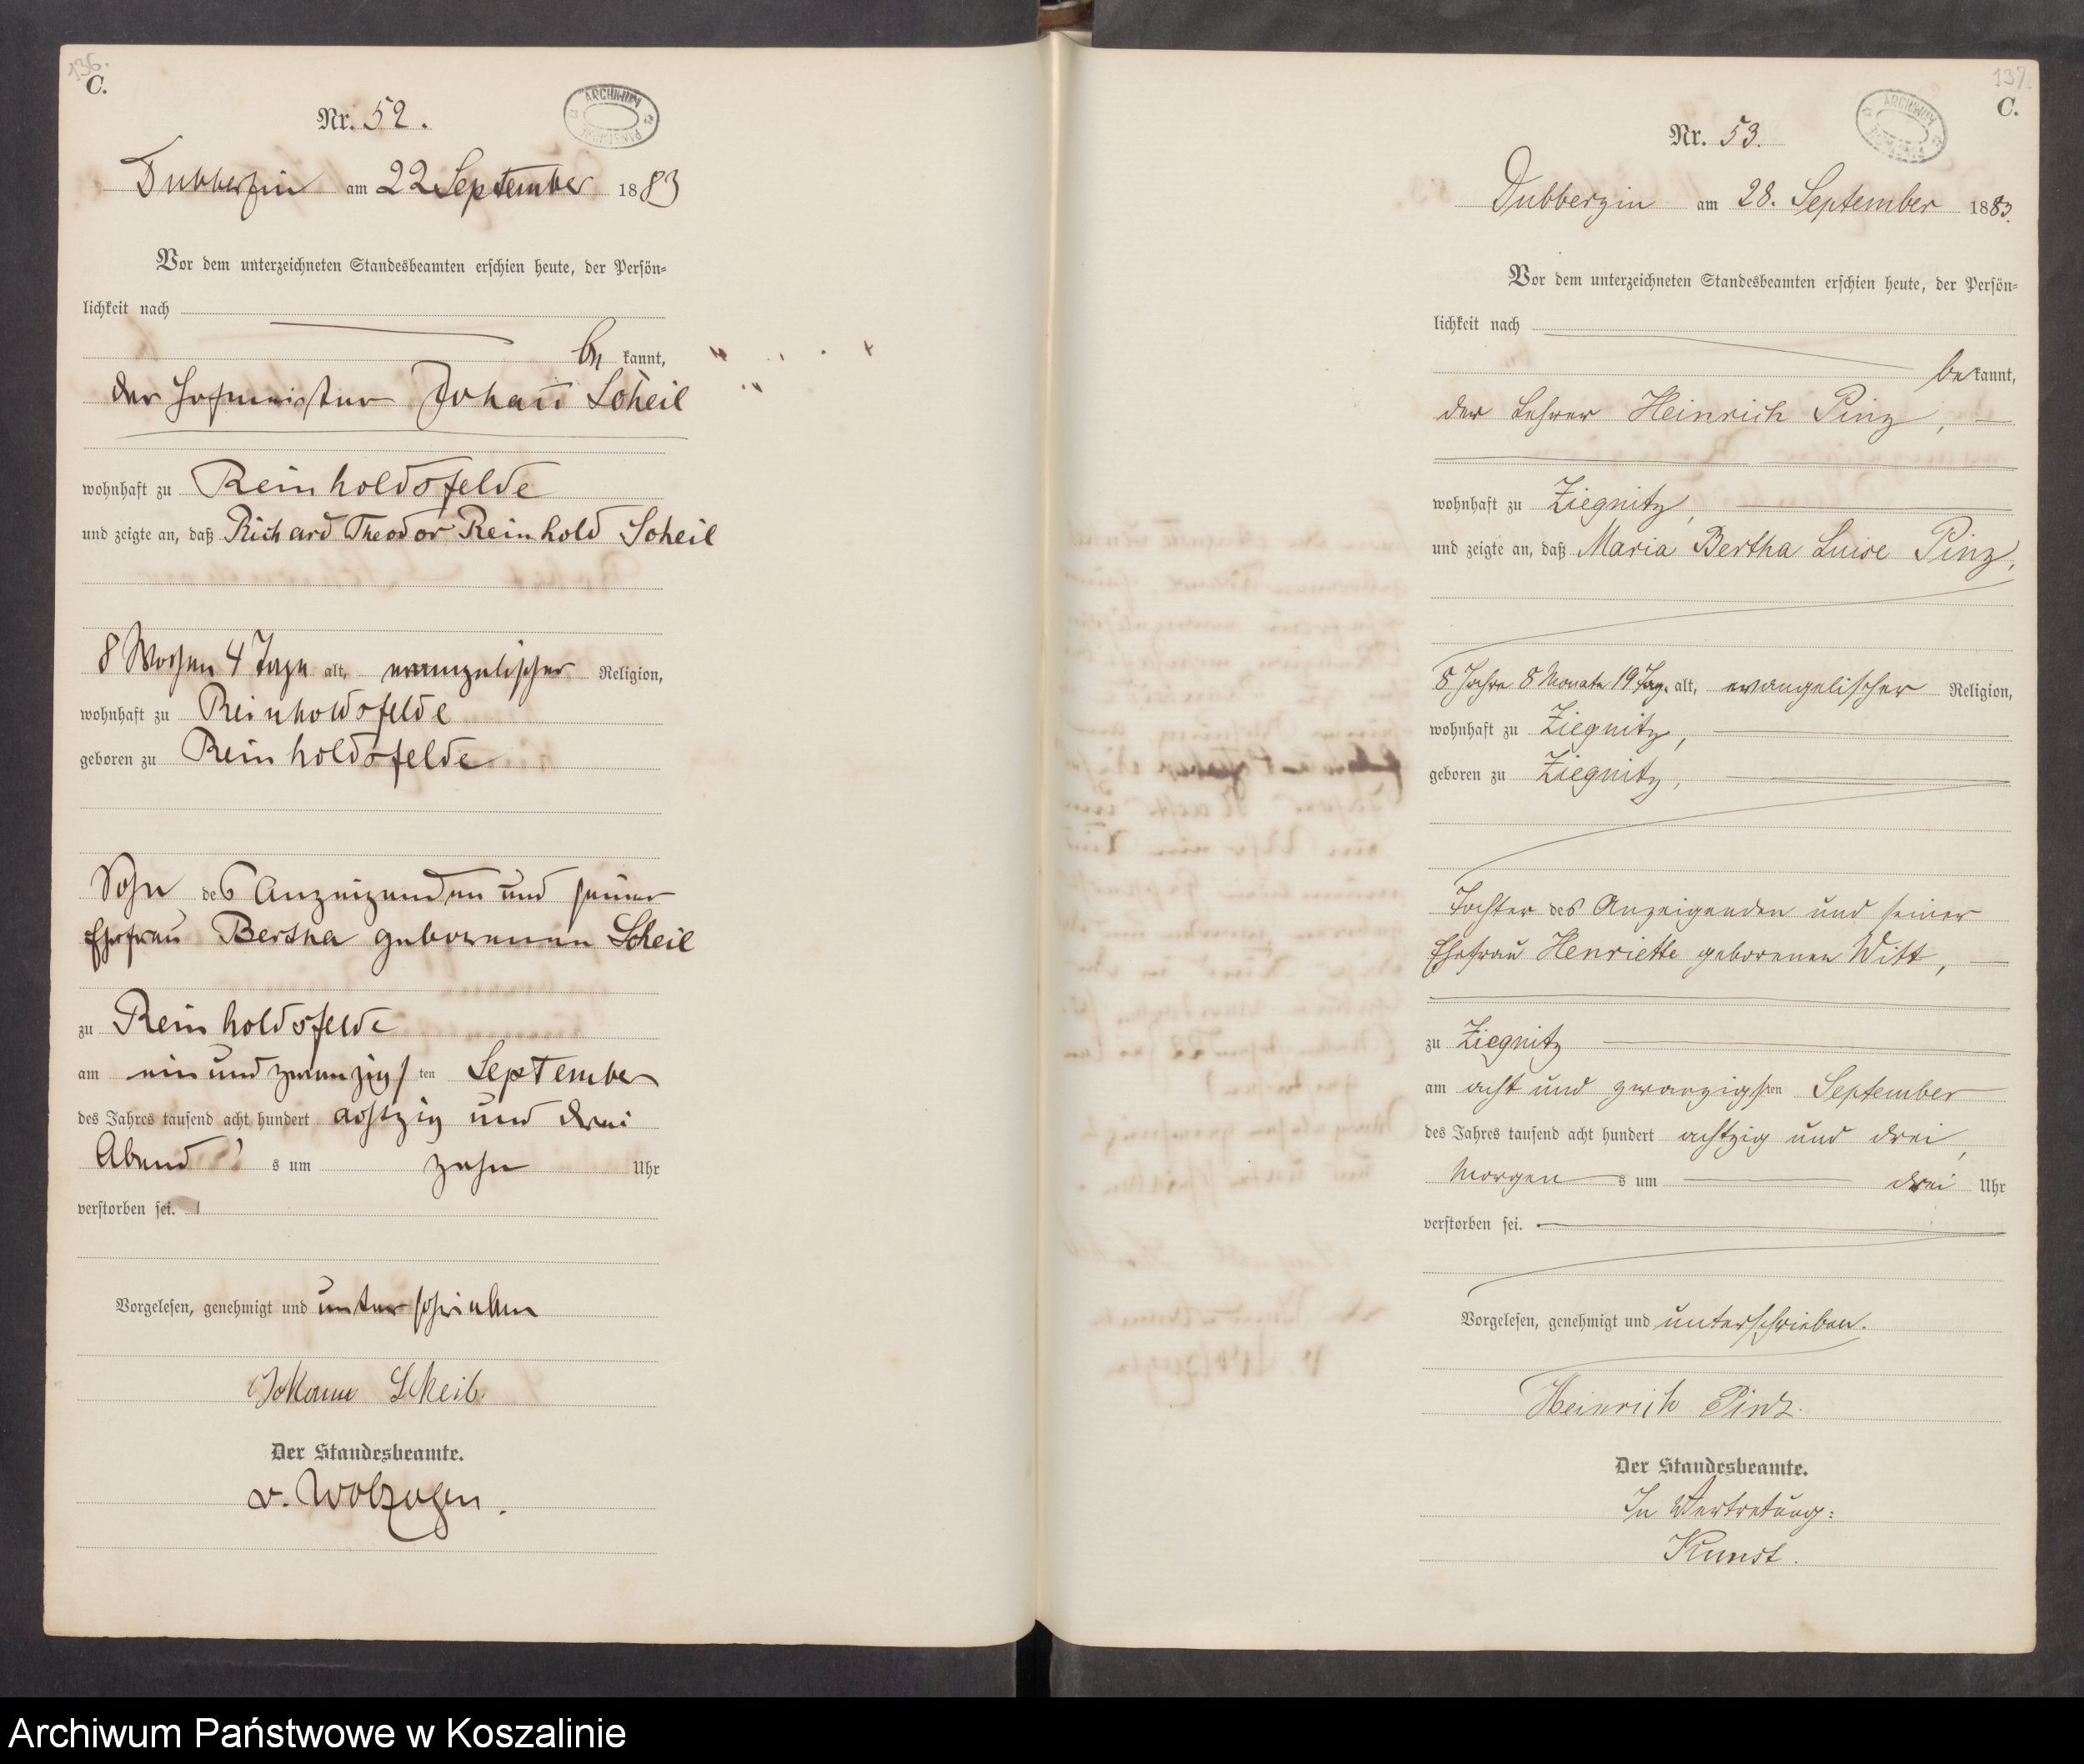 136.
C.
ARCHIWUM
Nr. 52.
Dubberzin am 22 September 1883
Vor dem unterzeichneten Standesbeamten erschien heute, der Persön-
lichkeit nach
be kannt,
der Hofmeister Johann Scheil
wohnhaft zu Reinholdsfelde
und zeigte an, daß Richard Theodor Reinhold Scheil
8 Wochen 4 Tage alt, evangelischer Religion,
wohnhaft zu Reinholdsfelde
geboren zu Reinholdsfelde
Sohn des Anzeigenden und seiner
Ehefrau Bertha geborenen Scheil
zu Reinholdsfelde
am ein und zwanzigsten September
des Jahres tausend acht hundert achtzig und drei
Abends um zehn Uhr
verstorben sei.
Vorgelesen, genehmigt und unterschrieben
Johann Scheil.
Der Standesbeamte.
v. Wolzogen.
137.
C.
ARCHIWUM
Nr. 53.
Dubberzin am 28. September 1883.
Vor dem unterzeichneten Standesbeamten erschien heute, der Persön-
lichkeit nach
bekannt,
der Lehrer Heinrich Pinz,
wohnhaft zu Ziegnitz,
und zeigte an, daß Maria Bertha Luise Pinz,
8 Jahre 8 Monate 19 Tag. alt, evangelischer Religion,
wohnhaft zu Ziegnitz,
geboren zu Ziegnitz,
Tochter des Anzeigenden und seiner
Ehefrau Henriette geborenen Witt,
zu Ziegnitz
am acht und zwanzigsten September
des Jahres tausend acht hundert achtzig und drei,
Morgens um drei Uhr
verstorben sei.
Vorgelesen, genehmigt und unterschrieben.
Heinrich Pinz.
Der Standesbeamte.
In Vertretung:
Kunst.
Archiwum Państwowe w Koszalinie